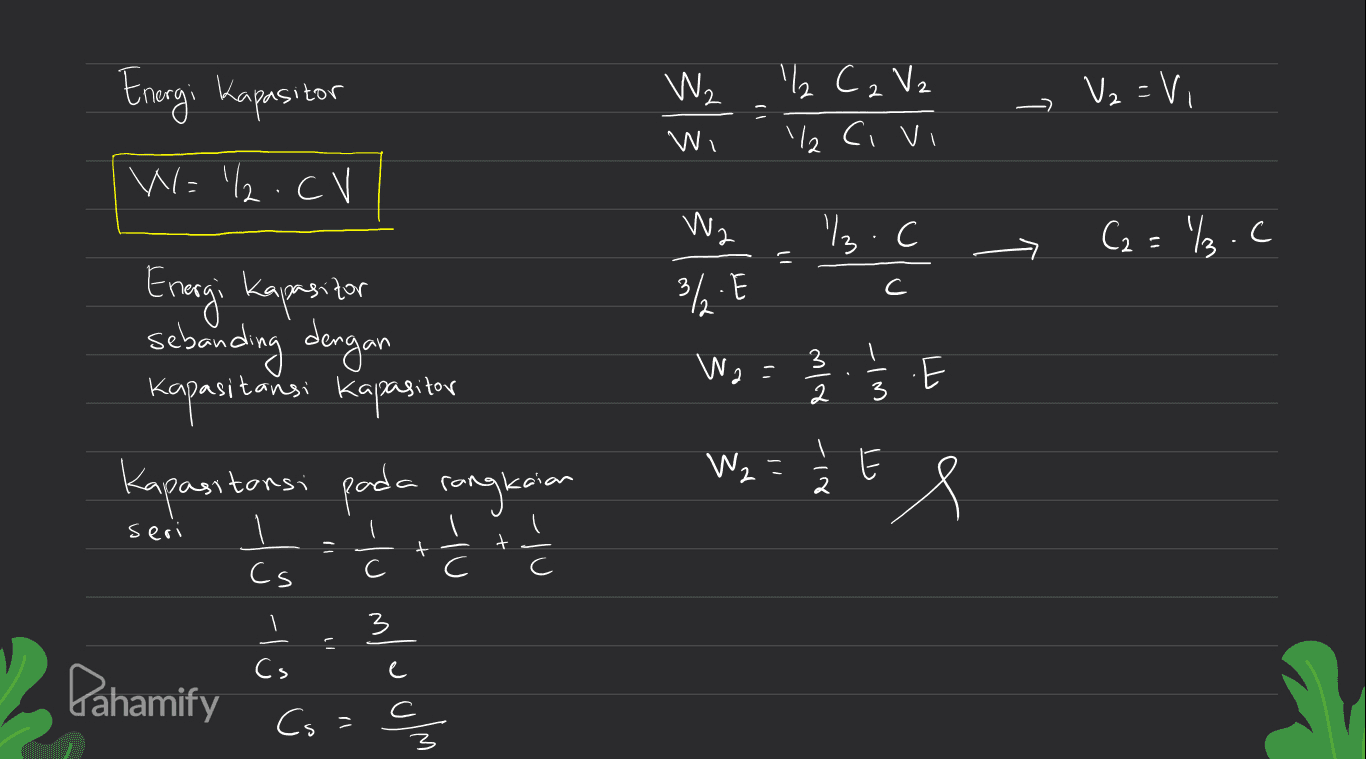 Energi Kapasitor
W = 1/2 . C V
Energi Kapasitor
sebanding dengan
Kapasitansi Kapasitor
Kapasitansi pada rangkaian
seri
1/Cs = 1/C + 1/C + 1/C
1/Cs = 3/C
Cs = C/3
W2/W1 = 1/2 C2 V2 / 1/2 C1 V1 → V2 = V1
W2 / 3/2 . E = 1/3 . C / C → C2 = 1/3 . C
W2 = 3/2 . 1/3 . E
W2 = 1/2 E
Pahamify